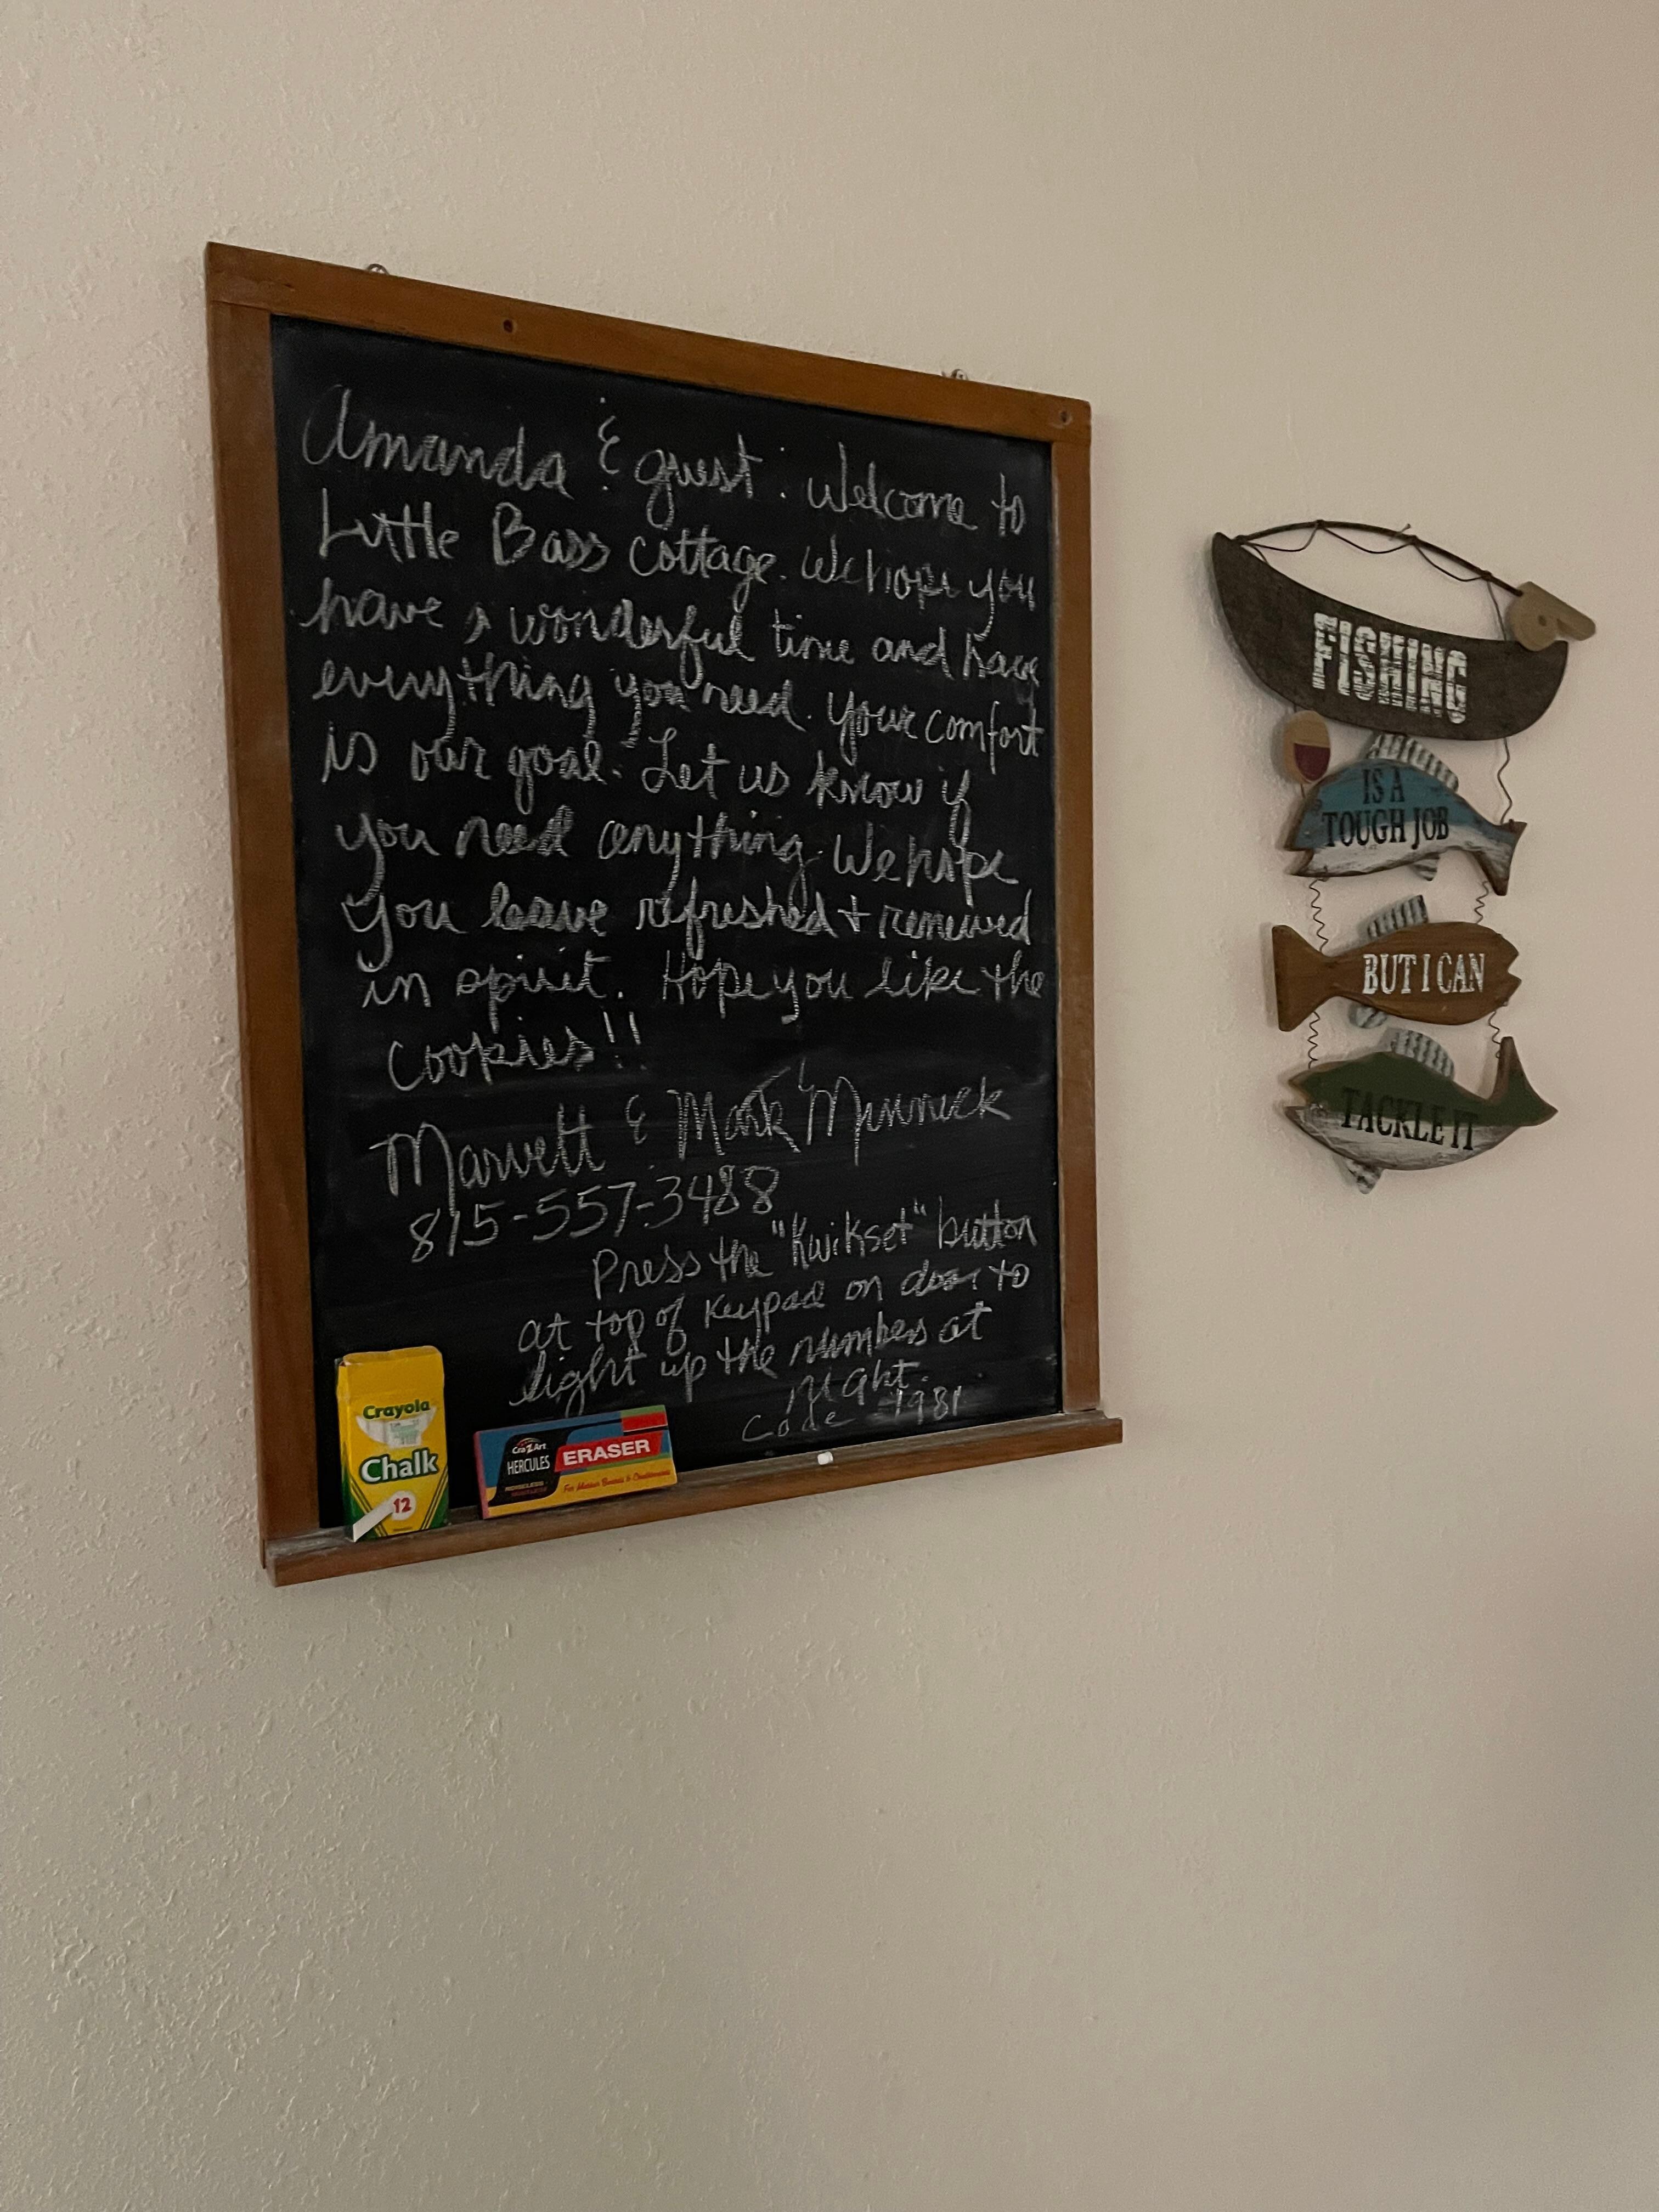 Amanda & guest: Welcome to
Little Bass Cottage. We hope you
have a wonderful time and have
everything you need. Your comfort
is our goal. Let us know if
you need anything. We hope
you leave refreshed + renewed
in spirit. Hope you like the
cookies!!
Marvett & Mark Minnick
815-557-3488
Press the "Kwikset" button
at top of keypad on door to
light up the numbers at
night.
Code 1981
Crayola
Chalk
12
Cra-Z-Art
HERCULES
ERASER
FISHING
IS A
TOUGH JOB
BUT I CAN
TACKLE IT